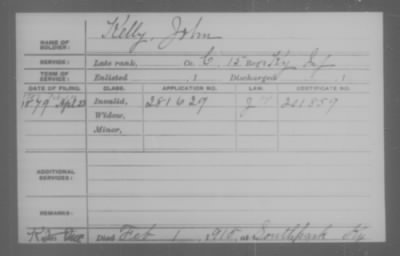 NAME OF SOLDIER: Kelly, John
SERVICE: Late rank, Co. C, 15 Reg't Ky Inf
TERM OF SERVICE: Enlisted , 1 Discharged , 1
DATE OF FILING. CLASS. APPLICATION NO. LAW. CERTIFICATE NO.
1879 Apl 23 Invalid, 281629 221859
Widow,
Minor,
ADDITIONAL SERVICES:
REMARKS:
Died Feb 1, 1915, at Southpark Ky